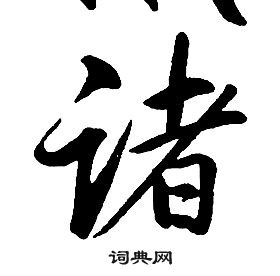 诸
词典网